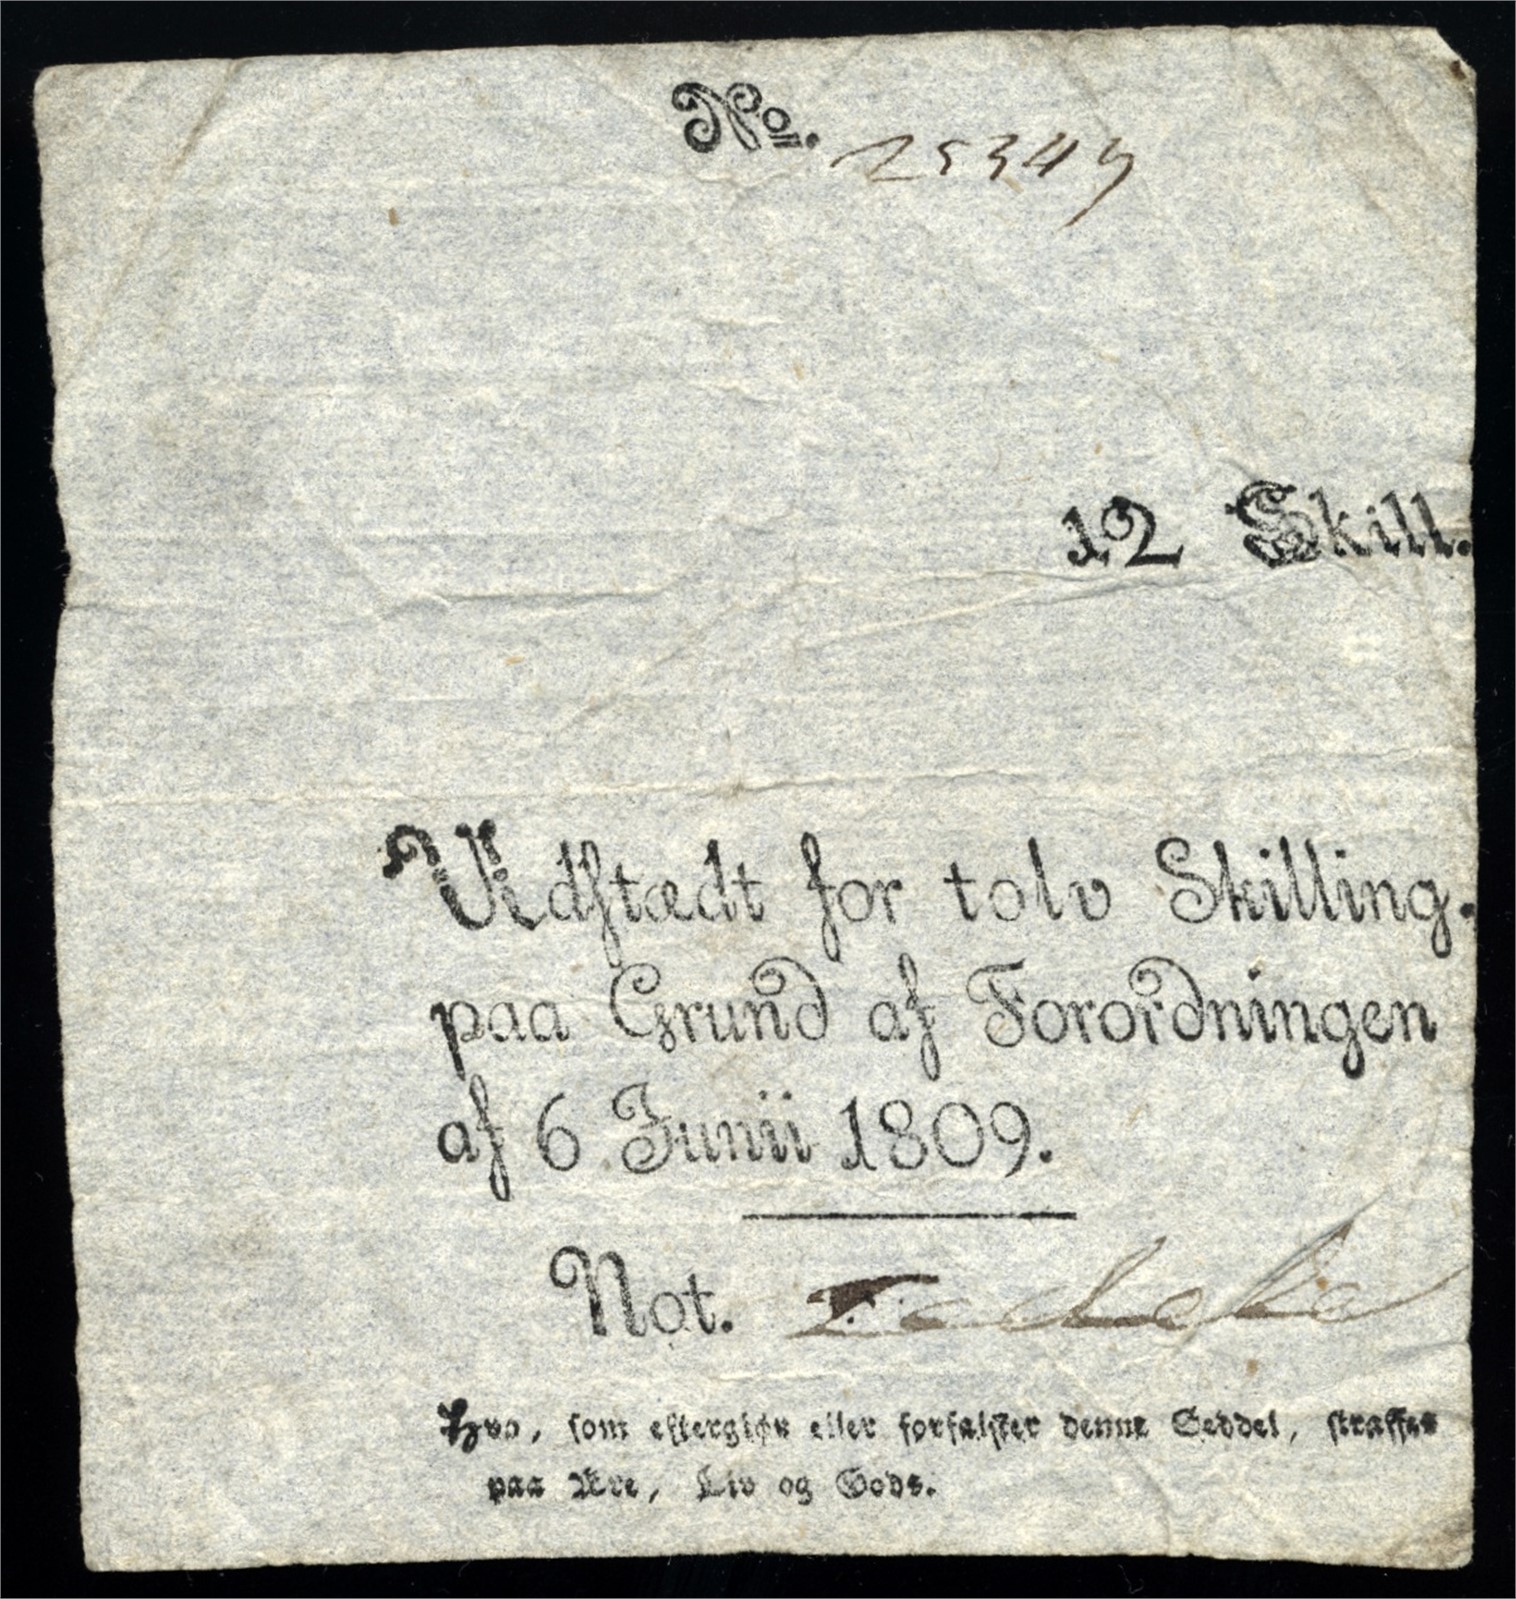 No. 25349
12 Skill.
Udstædt for tolv Skilling.
paa Grund af Forordningen
af 6 Junii 1809.
Not.
Hvo, som eftergiør eller forfalsker denne Seddel, straffes
paa Ære, Liv og Gods.